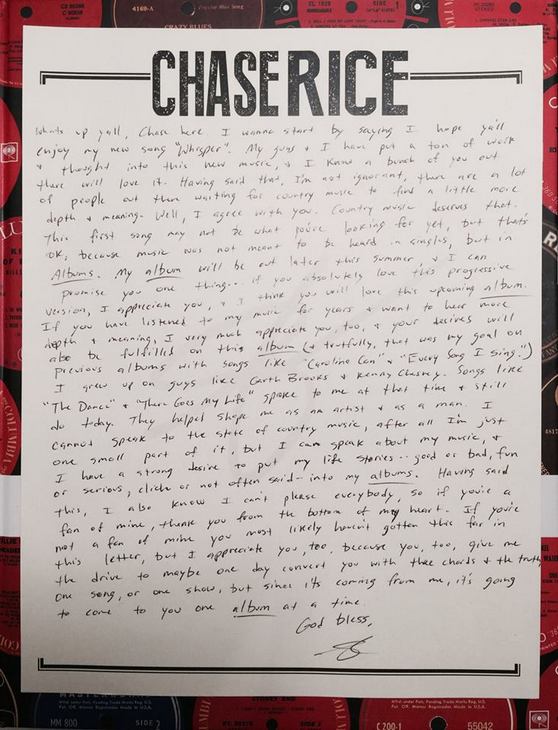 4160-A
Popular Blue Song
CRAZY BLUES
SIDE 1
CHASE RICE
Whats up yall, Chase here I wanna start by saying I hope ya'll
enjoy my new song "Whisper". My guys & I have put a ton of work
& thought into this new music, & I know a bunch of you out
there will love it. Having said that, I'm not ignorant, there are a lot
of people out there waiting for country music to find a little more
depth & meaning. Well, I agree with you. Country music deserves that.
This first song may not be what you're looking for yet, but that's
OK, because music was not meant to be heard in singles, but in
Albums. My album will be out later this summer, & I can
promise you one thing... if you absolutely love this progressive
version, I appreciate you, & I think you will love this upcoming album.
If you have listened to my music for years & want to hear more
depth & meaning, I very much appreciate you, too, & your desires will
also be fulfilled on this album (& truthfully, that was my goal on
previous albums with songs like "Caroline Can" & "Every Song I sing".)
I grew up on guys like Garth Brooks & Kenny Chesney. Songs like
"The Dance" & "There Goes My Life" spoke to me at that time & still
do today. They helped shape me as an artist & as a man. I
cannot speak to the state of country music, after all I'm just
one small part of it, but I can speak about my music, &
I have a strong desire to put my life stories -- good or bad, fun
or serious, clich or not often said -- into my albums. Having said
this, I also know I can't please everybody, so if you're a
fan of mine, thank you from the bottom of my heart. If you're
not a fan of mine you most likely haven't gotten this far in
this letter, but I appreciate you, too, because you, too, give me
the drive to maybe one day convert you with three chords & the truth,
one song, or one show, but since it's coming from me, it's going
to come to you one album at a time.
God bless,
COLUMBIA
MM 800
SIDE 2
C 200-1
55042